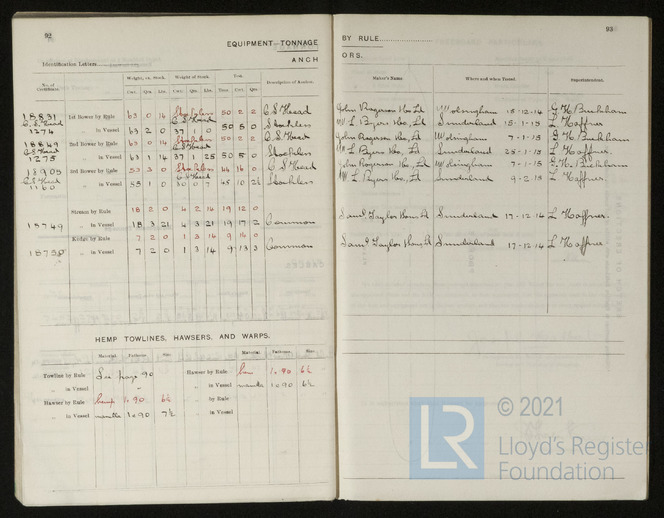 92
EQUIPMENT TONNAGE
Identification Letters
ANCH
No. of Certificate. Weight, ex. Stock. Weight of Stock. Test. Description of Anchor.
Cwt. Qrs. Lbs. Cwt. Qrs. Lbs. Tons. Cwt. Qrs.
18831 1st Bower by Rule 63 0 14 Stockless 50 2 2 C S Head
C.S. Head 1274 in Vessel 63 2 0 37 1 0 50 5 0 Stockless
18849 2nd Bower by Rule 63 0 14 Stockless 50 2 2 C.S. Head
C.S Head 1275 in Vessel 63 1 14 37 1 25 50 5 0 Stockless
18905 3rd Bower by Rule 53 3 0 Stockless 44 16 0 C S Head
C.S Head 1160 in Vessel 55 1 0 30 0 45 10 Stockless
Stream by Rule 18 2 0 4 2 14 19 12 0
15749 " in Vessel 18 3 21 4 3 21 19 17 2 Common
Kedge by Rule 7 2 0 1 3 14 9 14 0
15750 " in Vessel 7 2 0 1 3 14 9 13 3 Common
HEMP TOWLINES, HAWSERS, AND WARPS.
Material. Fathoms. Size. Material. Fathoms. Size.
Towline by Rule See page 90 Hawser by Rule 1 @ 90 6½
" in Vessel " in Vessel manilla 1 @ 90 6½
Hawser by Rule hemp 1 @ 90 " by Rule
" in Vessel manilla 1 @ 90 7½ " in Vessel
93
BY RULE
ORS.
Maker's Name Where and when Tested. Superintendent.
John Rogerson &Co Ld Wolsingham 15-12-14 G H Burkham
W. L Byers &Co, Ld Sunderland 15-1-15 L Haffner
John Rogerson &Co, Ld Wolsingham 7-1-15 G H Burkham
W L Byers &Co, Ld Sunderland 25-1-15 L Haffner
John Rogerson &Co, Ld Wolsingham 7-1-15 G. H. Burkham
W L Byers &Co, Ld Sunderland 9-2-15 L Haffner.
Saml Taylor &Sons Ld Sunderland 17-12-14 L Haffner.
Saml Taylor &Sons, Ld Sunderland 17-12-14 L Haffner
LR
© 2021
Lloyd's Register
Foundation